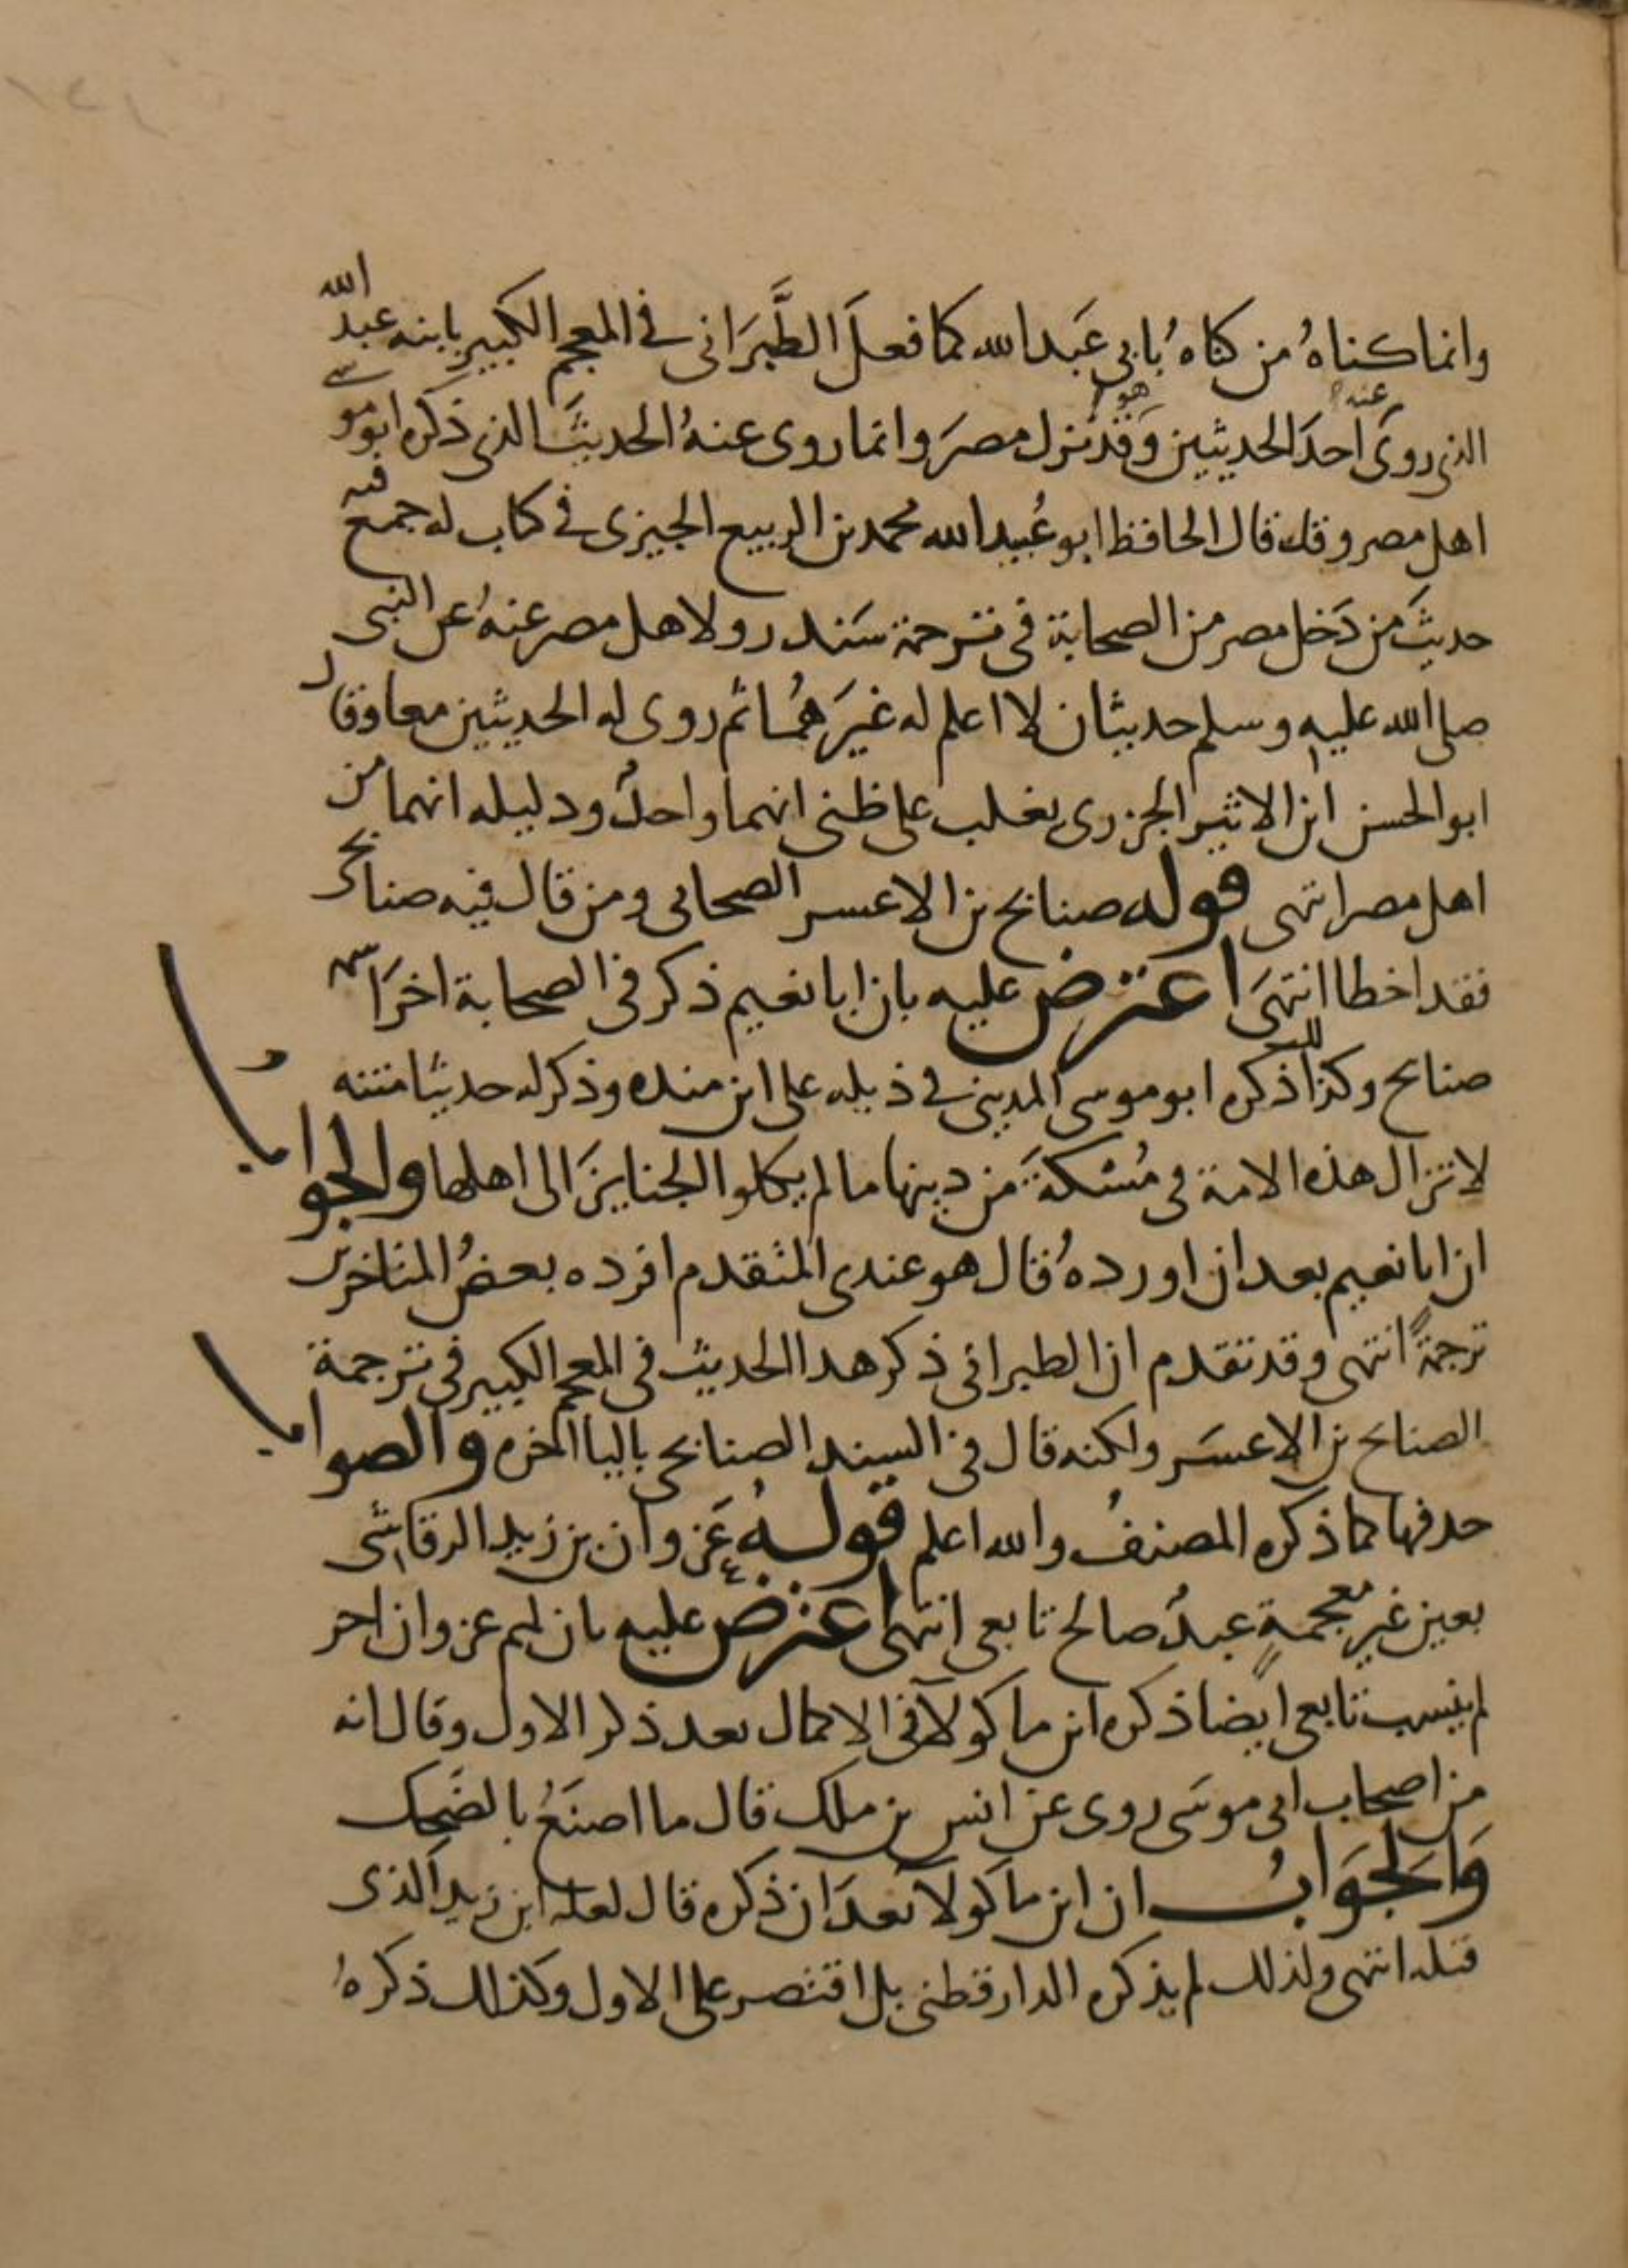 وانما كناهُ من كناهُ بابى عَبد الله كما فعلَ الطَّبَرَانى فى المعجم الكبير بابنه عبد الله
الذى روى عنه احدَ الحديثين وَقَد نزل هو مصرَ وانما روى عنهُ الحديثَ الذى ذكره ابو موسى
اهل مصر وقد قال الحافظ ابو عُبيد الله محمد بن الربيع الجيزى فى كتاب له جمع فيه
حديثَ من دَخل مصر من الصحابة فى ترجمة سَندر ولاهل مصر عنهُ عن النبى
صلى الله عليه وسلم حديثان لا اعلم له غيرَ هُمَا ثم روى له الحديثين معا وقال
ابو الحسن ابن الاثير الجزرى يغلب على ظنى انهما واحدٌ ودليله انهما من
اهل مصر انتهى قوله صنابح بن الاعسر الصحابى ومن قال فيه صنابحى
فقد اخطا انتهَى اعترض عليه بان ابا نعيم ذكر فى الصحابة اخرَ اسمه
صنابح وكذا ذكره ابو موسى المدينى فى ذيله على ابن منده وذكر له حديثا متنه
لا تزال هذه الامة فى مُسْكةٍ من دينها ما لم يكلوا الجنايزَ الى اهلها والجواب
ان ابا نعيم بعد ان اوردهُ قال هو عندى المتقدم افرده بعضُ المتاخرين
ترجمةً انتهى وقد تقدم ان الطبرانى ذكر هدا الحديث فى المعجم الكبير فى ترجمة
الصنابح بن الاعسَر ولكنه قال فى السند الصنابحى باليا اخره والصواب
حدفها كما ذكره المصنفُ والله اعلم قولهُ عَزوان بن زيد الرقاشى
بعين غير معجمةٍ عبدٌ صالح تابعى انتهى اعترض عليه بان لهم عزوان اخر
لم ينسب تابعى ايضًا ذكره ابن ماكولا فى الاكمال بعد ذكر الاول وقال انه
من اصحاب ابى موسَى روى عن انس بن ملك قال ما اصنَعُ بالضَحِك
وَالجَوَابُ ان ابن ماكولا بعدَ ان ذكره قال لعله ابن زيد الذى
قبله انتهى ولذلك لم يذكره الدارقطنى بل اقتصر على الاول وكذلك ذكرهُ